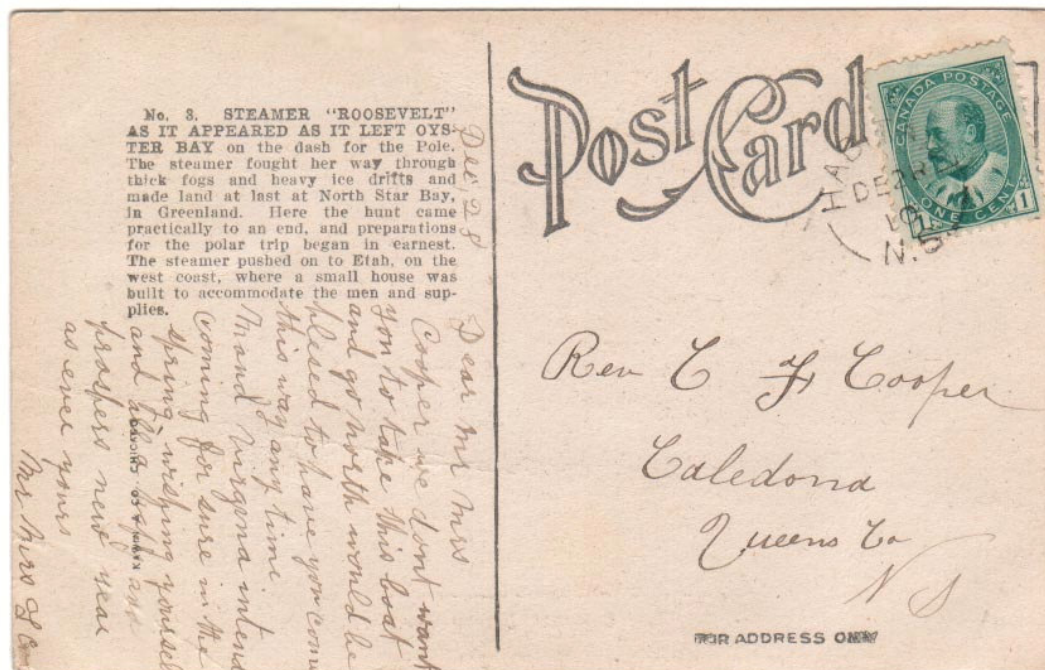 No. 3. STEAMER "ROOSEVELT"
AS IT APPEARED AS IT LEFT OYS-
TER BAY on the dash for the Pole.
The steamer fought her way through
thick fogs and heavy ice drifts and
made land at last at North Star Bay,
in Greenland. Here the hunt came
practically to an end, and preparations
for the polar trip began in earnest.
The steamer pushed on to Etah, on the
west coast, where a small house was
built to accommodate the men and sup-
plies.
Dec, 28
Dear Mr Mrs
Cooper we dont want
you to take this boat
and go north would be
plesed to have you come
this way any time
Mond Virgena intens
coming for sure in the
spring wishing yourself
and all a happy and
prospers new year
as ever yours
Mr Mrs
CO CHICAGO
Post Card
CANADA POSTAGE
ONE CENT
1 1
DE 28
N.S.
Rev C F Cooper
Caledona
Queens Co
N S
FOR ADDRESS ONLY